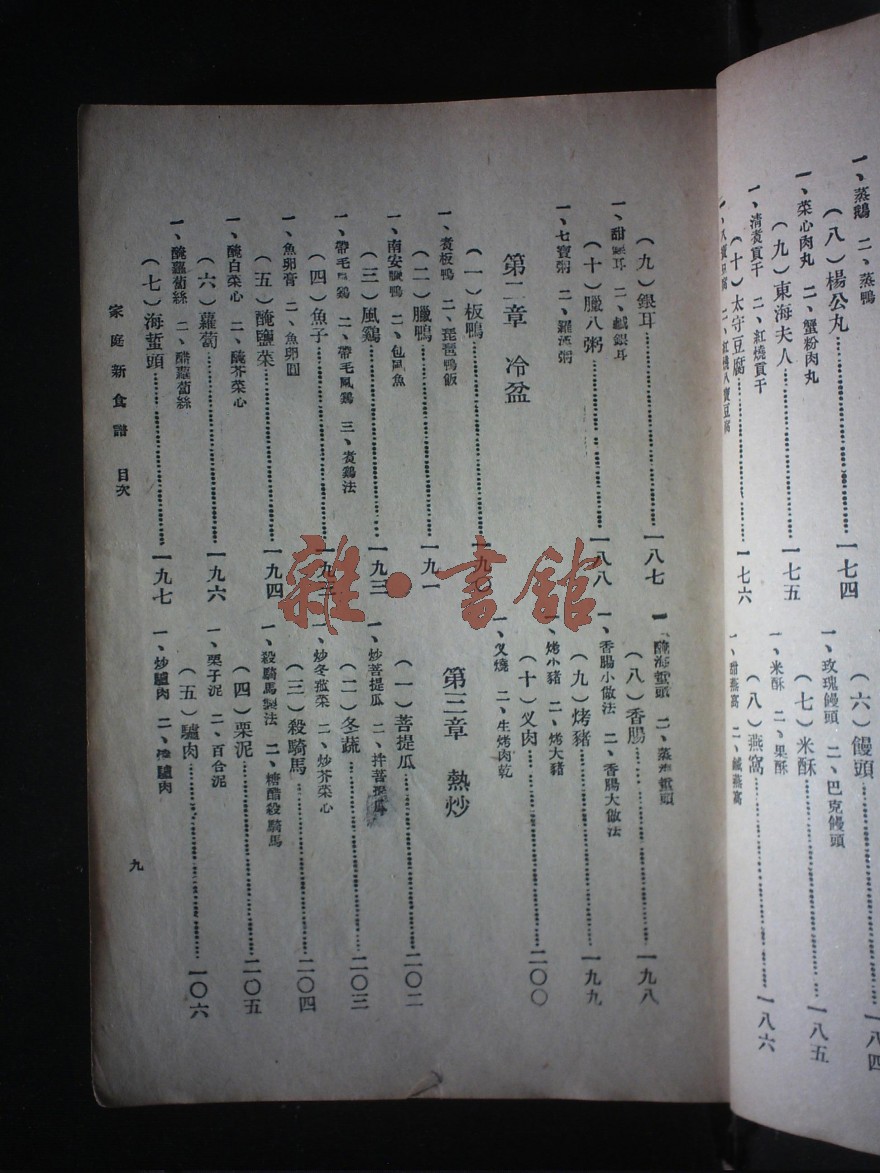 一、蒸鵝 二、蒸鴨
(八)楊公丸……一七四
一、菜心肉丸 二、蟹粉肉丸
(九)東海夫人……一七五
一、清煮貢干 二、紅燒貢干
(十)太守豆腐……一七六
(六)饅頭……一八四
一、玫瑰饅頭 二、巴克饅頭
(七)米酥……一八五
一、米酥 二、果酥
(八)燕窩……一八六
一、甜燕窩 二、鹹燕窩
(九)銀耳……一八七
一、甜銀耳 二、鹹銀耳
(十)臘八粥……一八八
一、七寶粥 二、羅漢粥
第二章 冷盆
(一)板鴨……一九〇
一、煑板鴨 二、琵琶鴨飯
(二)臘鴨……一九一
一、南安臘鴨 二、包風魚
(三)風鷄……一九三
一、帶毛風鷄 二、帶毛風鷄 三、煑鷄法
(四)魚子……一九三
一、魚卵膏 二、魚卵圓
(五)醃鹽菜……一九四
一、醃白菜心 二、醃芥菜心
(六)蘿蔔……一九六
一、醃蘿蔔絲 二、醋蘿蔔絲
(七)海蜇頭……一九七
一、醃海蜇頭 二、蒸海蜇頭
(八)香腸……一九八
一、香腸小做法 二、香腸大做法
(九)烤豬……一九九
一、烤小豬 二、烤大豬
(十)叉肉……二〇〇
一、叉燒 二、生烤肉乾
第三章 熱炒
(一)菩提瓜……二〇二
一、炒菩提瓜 二、拌菩提瓜
(二)冬蔬……二〇三
一、炒冬菰菜 二、炒芥菜心
(三)殺騎馬……二〇四
一、殺騎馬製法 二、糖醋殺騎馬
(四)栗泥……二〇五
一、栗子泥 二、百合泥
(五)驢肉……一〇六
一、炒驢肉 二、燻驢肉
家庭新食譜 目次
九
雜·書館